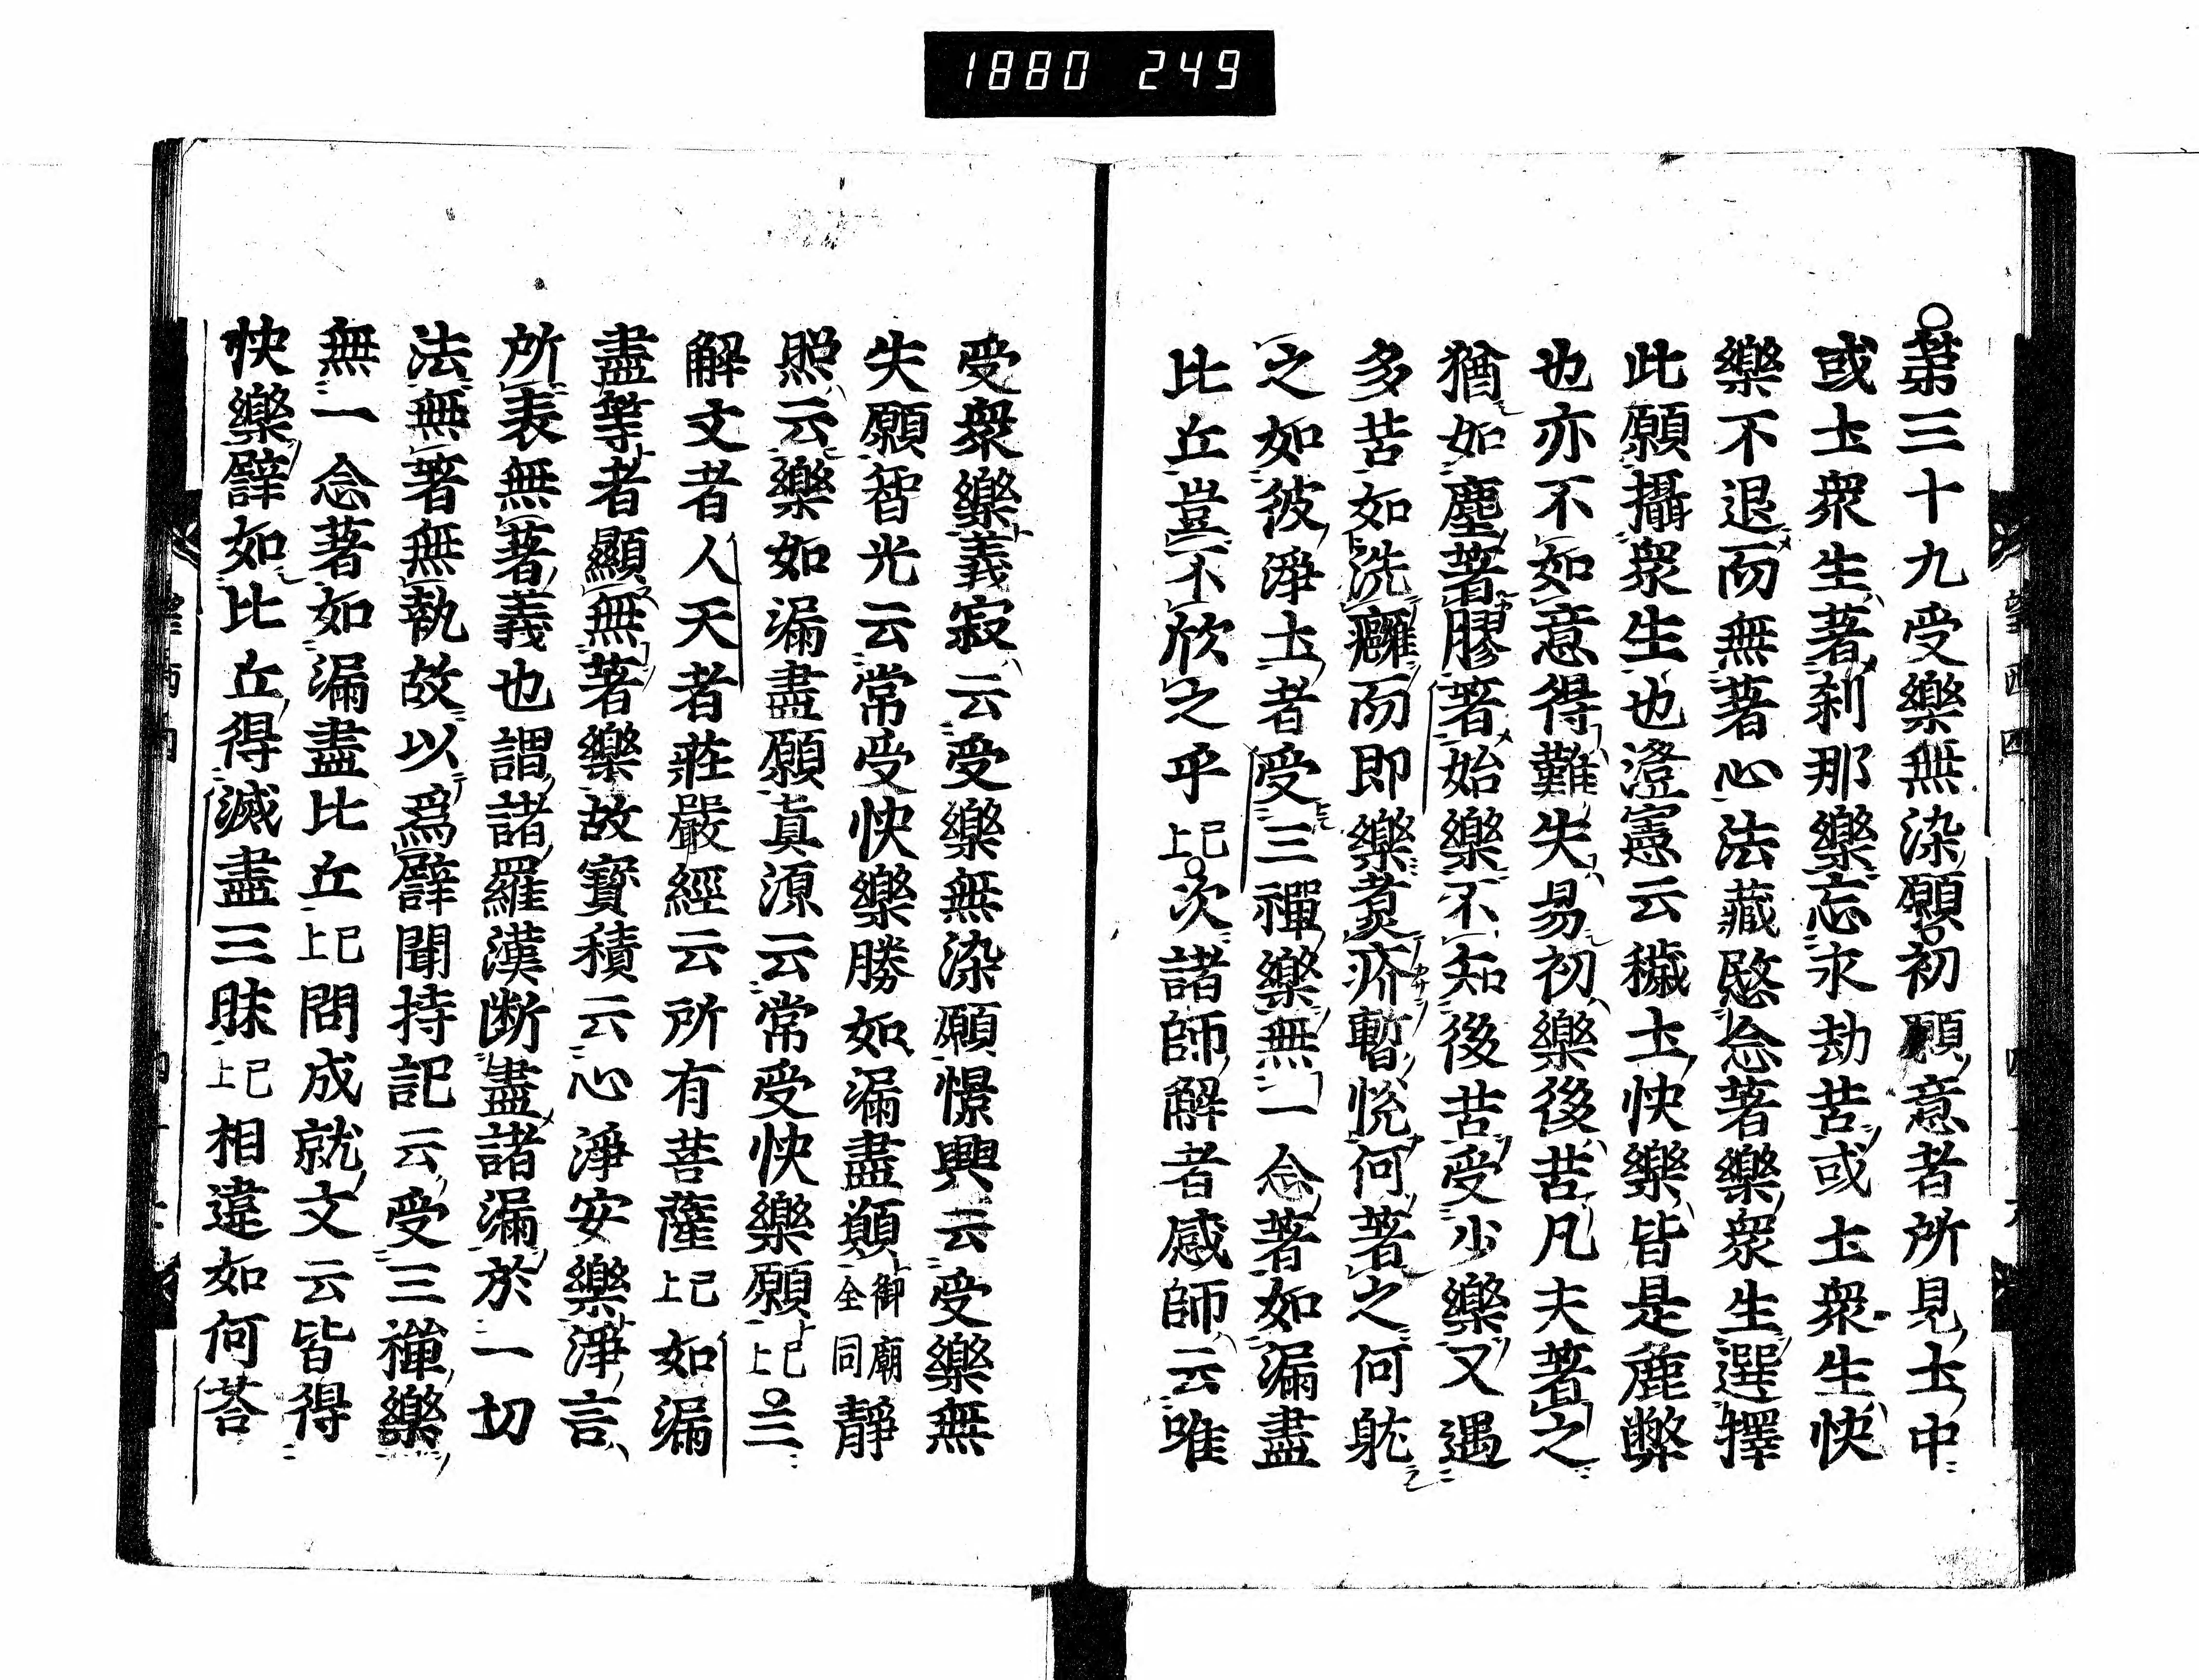 1880 249
○第三十九受樂無染願○初願意者所見土中
或土衆生著刹那樂忘永劫苦或土衆生快
樂不退而無著心法藏愍念著樂衆生選擇
此願攝衆生也澄憲云穢土快樂皆是麁弊
也亦不如意得難失易初樂後苦凡夫著之
猶如塵著膠著始樂不知後苦受少樂又遇
多苦如洗癰而即樂煑疥暫悅何著之何躭
之如彼淨土者受三禪樂無一念著如漏盡
比丘豈不欣之乎已上○次諸師解者感師云唯
受衆樂義寂云受樂無染願憬興云受樂無
失願智光云常受快樂勝如漏盡願御廟全同靜
照云樂如漏盡願真源云常受快樂願已上○三
解文者人天者莊嚴經云所有菩薩已上如漏
盡等者顯無著樂故寶積云心淨安樂淨言
所表無著義也謂諸羅漢断盡諸漏於一切
法無著無執故以爲譬聞持記云受三禪樂
無一念著如漏盡比丘已上問成就文云皆得
快樂譬如比丘得滅盡三昧已上相違如何荅